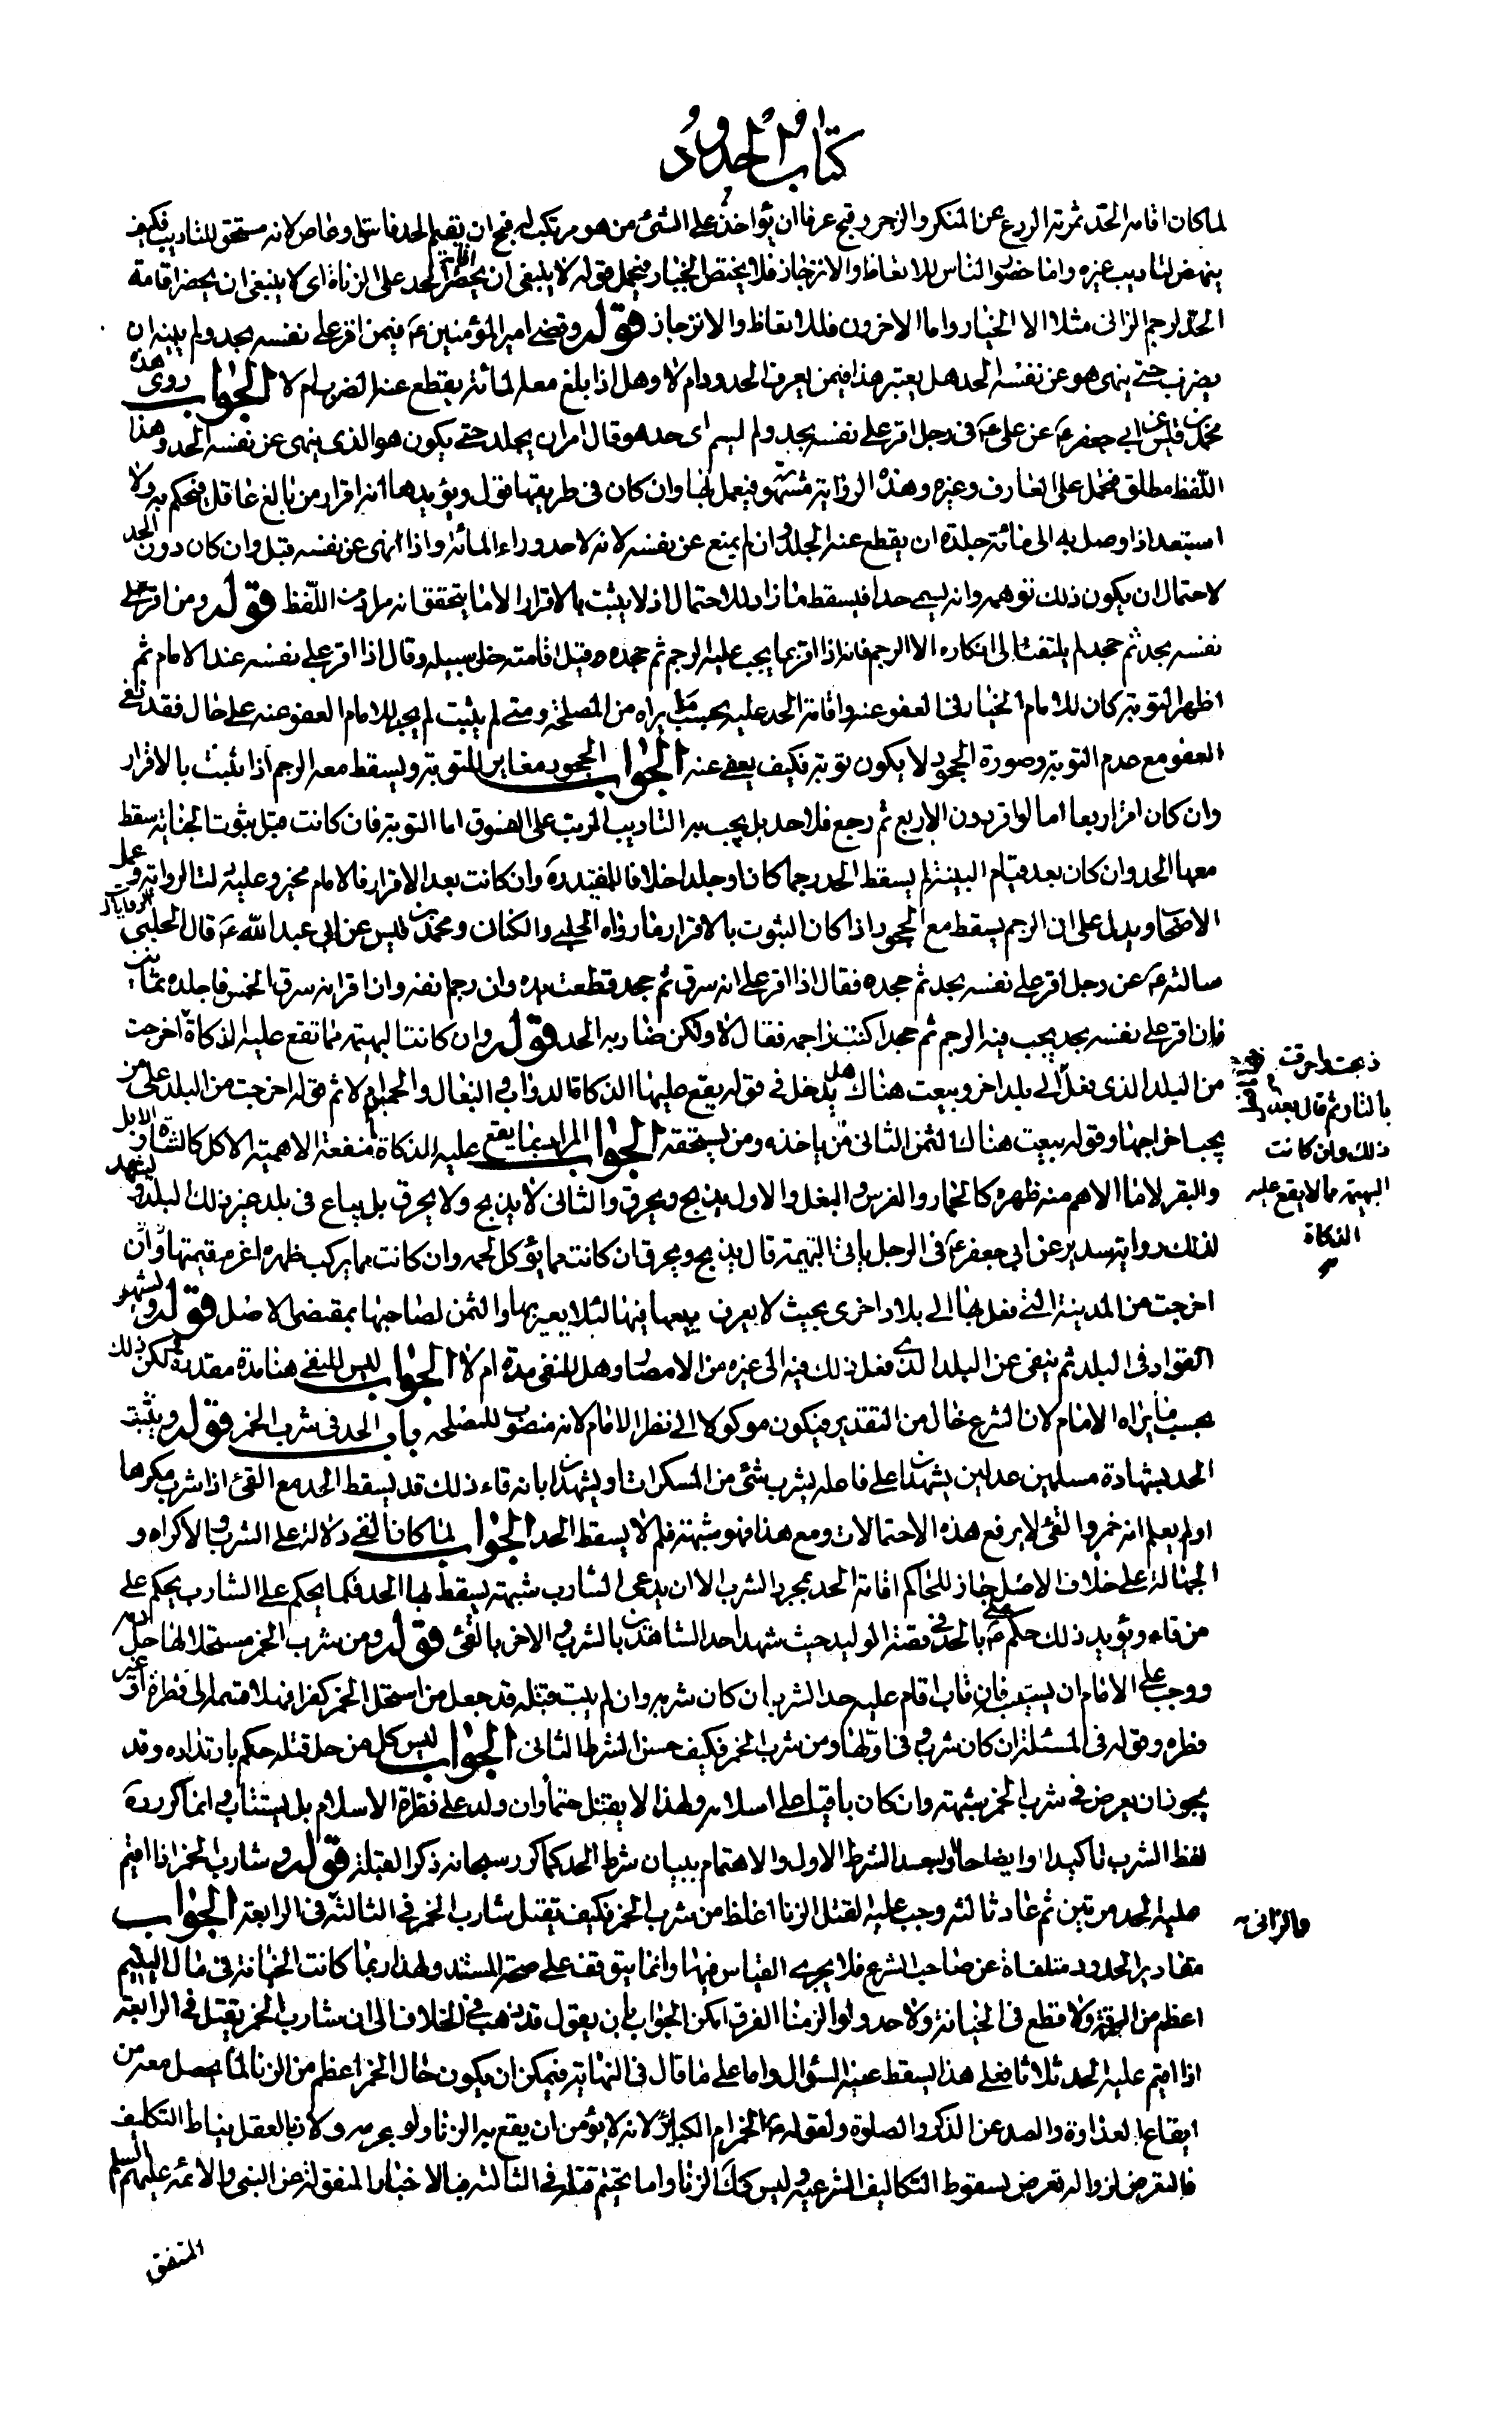 كتاب الحدود
لما كان اقامة الحد ثمرته الردع عن المنكر والزجر وقبح عرفا ان يؤاخذ على الشئ من هو مرتكب له قبح ان يقيم الحد فاسق وعاص لانه مستحق للتاديب فكيف
ينهض لتاديب غيره واما حضور الناس للاتعاظ والانزجار فلا يختص الخيار فيحمل قوله لا ينبغى ان يحضر اقامة الحد على الزناة اى لا ينبغى ان يحضر اقامة
الحد لرجم الزانى مثلا الا الخيار واما الاخرون فللاتعاظ والانزجار قوله وقضى امير المؤمنين ع فيمن اقر على نفسه بحد ولم يبينه ان
يضرب حتى ينهى هو عن نفسه الحد هل يعتبر هذا فيمن يعرف الحدود ام لا وهل اذا بلغ معه المائة يقطع عنه الضرب ام لا الجواب روى هذه
محمد بن قيس عن ابى جعفر ع عن على ع فى رجل اقر على نفسه بحد ولم يسم اى حد هو قال امر ان يجلد حتى يكون هو الذى ينهى عن نفسه الحد وهذا
اللفظ مطلق فيحمل على العارف وغيره وهذه الرواية مشتهرة فيعمل بها وان كان فى طريقها قول ويؤيدها انه اقرار من بالغ عاقل فيحكم به ولا
استبعد اذا وصل به الى مائة جلدة ان يقطع عنه الجلد وان لم يمنع عن نفسه لانه لا حد وراء المائة واذا انهى عن نفسه قبل وان كان دون الحد
لاحتمال ان يكون ذلك توهمه وانه يسمى حدا فيسقط ما زاد للاحتمال اذ لا يثبت بالاقرار الا ما يتحقق انه مراد من اللفظ قوله ومن اقر على
نفسه بحد ثم جحد لم يلتفت الى انكاره الا الرجم فانه اذا اقر بما يجب عليه الرجم ثم جحده قبل اقامته خلى سبيله وقال اذا اقر على نفسه عند الامام ثم
اظهر التوبة كان للامام الخيار فى العفو عنه واقامة الحد عليه بحسب ما يراه من المصلحة ومتى لم يثبت لم يجز للامام العفو عنه على حال فقد نفى
العفو مع عدم التوبة وصورة الجحود لا يكون توبة فكيف يعفى عنه الجواب الجحود مغاير للتوبة ويسقط معه الرجم اذا ثبت بالاقرار
وان كان اقر اربعا اما لو اقر بدون الاربع ثم رجع فلا حد بل يجب به التاديب المرتب على الفسوق اما التوبة فان كانت قبل ثبوت الجناية سقط
معها الحد وان كان بعد قيام البينة لم يسقط الحد رجما كان او جلدا خلافا للمفيد ره وان كانت بعد الاقرار فالامام مخير وعليه الروايات وعمل
الاصحاب ويدل على ان الرجم يسقط مع الجحود اذا كان الثبوت بالاقرار ما رواه الحلبى والكنانى ومحمد بن قيس عن ابى عبد الله ع قال الحلبى
سالته ع عن رجل اقر على نفسه بحد ثم جحده فقال اذا اقر على انه سرق ثم جحد قطعت يده وان رجم انفه وان اقر انه شرب الخمر فاجلده ثمانين
فان اقر على نفسه بحد يجب فيه الرجم ثم جحد اكنت راجمه فقال لا ولكن ضاربه الحد قوله وان كانت البهيمة مما تقع عليه الذكاة اخرجت
من البلد الذى فعل الى بلد اخر وبيعت هناك هل يدخل فى قوله يقع عليها الذكاة الدواب البغال والحمير ام لا ثم قوله اخرجت من البلد على من
يجب اخراجها وقوله بيعت هناك الثمن الثانى من ياخذه ومن يستحقه الجواب المراد بما يقع عليه الذكاة منفعة الاهمية الاكل كالشاة والابل
والبقر لا ما الاهم منه ظهره كالحمار والفرس والبغل والاول يذبح ويحرق والثانى لا يذبح ولا يحرق بل يباع فى بلد غير ذلك البلد ويشهد
لذلك رواية سدير عن ابى جعفر ع فى الرجل ياتى البهيمة قال يذبح ويحرق ان كانت مما يؤكل لحمه وان كانت مما يركب ظهره اغرم قيمتها وان
اخرجت من المدينة التى فعل بها الى بلاد اخرى بحيث لا يعرف يبيعها فيها لئلا يعير بها والثمن لصاحبها بمقتضى الاصل قوله ويشهر
القواد فى البلد ثم ينفى عن البلد الذى فعل ذلك فيه الى غيره من الامصار وهل للنفى مدة ام لا الجواب ليس للنفى هنا مدة مقدرة لكن ذلك
بحسب ما يراه الامام لان الشرع خال من التقدير فيكون موكولا الى نظر الامام لانه منصوب للمصلحة باب الحد فى شرب الخمر قوله ويثبت
الحد بشهادة مسلمين عدلين يشهدان على فاعله بشرب شئ من المسكرات او يشهدان بانه قاء ذلك قد يسقط الحد مع القئ اذا شرب مكرها
او لم يعلم انه خمر والقئ لا يرفع هذه الاحتمالات ومع هذا فهو شبهة فلم لا يسقط الحد الجواب لما كان القئ دلالة على الشرب والاكراه و
الجهالة على خلاف الاصل جاز للحاكم اقامة الحد بمجرد الشرب الا ان يدعى الشارب شبهة يسقط بها الحد فكما يحكم على الشارب يحكم على
من قاء ويؤيد ذلك حكم على ع بالحد فى قصة الوليد حيث شهد احد الشاهدين بالشرب والاخر بالقئ قوله ومن شرب الخمر مستحلا لها حل دمه
ووجب على الامام ان يستتيب فان تاب اقام عليه حد الشرب ان كان شربه وان لم يتب قتله قد جعل من استحل الخمر كفرا فهلا قسمه الى فطرة او غير
فطرة وقوله فى المسئلة ان كان شربه فى اولها ومن شرب الخمر فكيف حسن الشرط الثانى الجواب ليس كل من حل قتله حكم بارتداده وقد
يجوز ان يعرض فى شرب الخمر شبهة وان كان باقيا على اسلامه ولهذا لا يقتل حتما وان ولد على فطرة الاسلام بل يستتاب وانما كرر ره
لفظ الشرب تاكيدا وايضاحا ولبعد الشرط الاول والاهتمام ببيان شرط الحد كما كرر سبحانه ذكر القبلة قوله وشارب الخمر اذا اقيم
عليه الحد مرتين ثم عاد ثالثة وجب عليه القتل الزنا اغلظ من شرب الخمر فكيف يقتل شارب الخمر فى الثالثة فى الرابعة الجواب
مقادير الحدود متلقاة عن صاحب الشرع فلا يجرى القياس فيها وانما يتوقف على صحة المستند ولهذا ربما كانت الخيانة فى مال اليتيم
اعظم من السرقة ولا قطع فى الخيانة ولا حد ولو الزمنا الفرق امكن الجواب بان يقول قد ذهب فى الخلاف الى ان شارب الخمر يقتل فى الرابعة
اذا اقيم عليه الحد ثلاثا فعلى هذا يسقط عنه السؤال واما على ما قال فى النهاية فيمكن ان يكون حال الخمر اعظم من الزنا لما يحصل معه من
ايقاع العداوة والصد عن الذكر والصلوة ولقوله ع الخمر ام الكبائر لانه لا يؤمن ان يقع به الزنا ولو بمحرمه ولان بالعقل يناط التكليف
فالتعرض لزواله تعرض لسقوط التكاليف الشرعية وليس كك الزنا واما تحتم قتله فى الثالثة فبالاخبار المنقولة عن النبى والائمة عليهم السلم
المتفق
ذبحت واحرقت
بالنار ثم قال بعد
ذلك وان كانت
البهيمة مما لا يقع عليه
الذكاة
والزانى